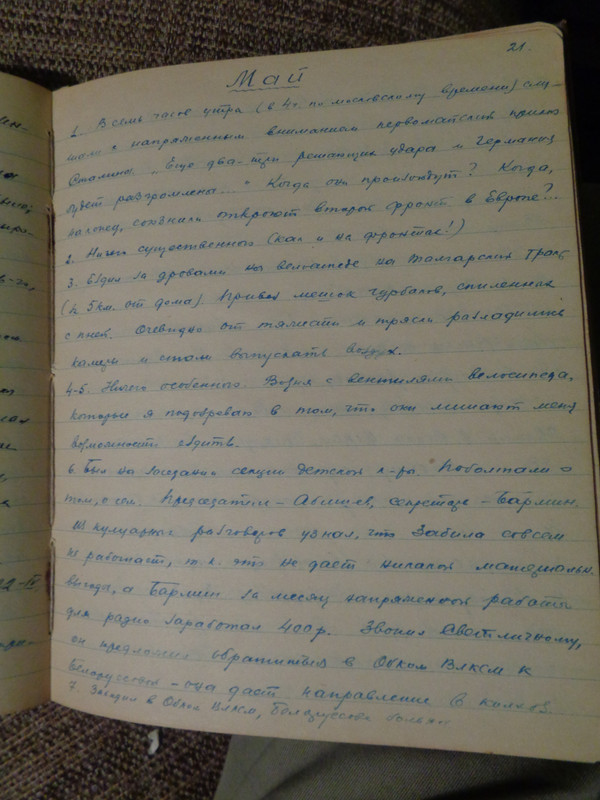 21.
Май
1. В семь часов утра (в 4 ч. по московскому времени) слу-
шаю с напряженным вниманием первомайский приказ
Сталина. „Еще два-три решающих удара и Германия
будет разгромлена..." Когда они произойдут? Когда,
наконец, союзники откроют второй фронт в Европе?..
2. Ничего существенного (как и на фронтах!)
3. Ездил за дровами на велосипеде на Талгарский тракт
(в 5 км. от дома) Привез мешок чурбаков, спиленных
с пней. Очевидно от тяжести и тряски разладились
камеры и стали выпускать воздух.
4-5. Ничего особенного. Возня с вентилями велосипеда,
которые я подозреваю в том, что они лишают меня
возможности ездить.
6. Был на заседании секции детской л-ры. Поболтали о
том, о сем. Председатель - Абишев, секретарь - Бармин.
Из кулуарных разговоров узнал, что Забила совсем
не работает, т.к. это не дает никакой материальн.
выгоды, а Бармин за месяц напряженной работы
для радио заработал 400 р. Звонил Светличному,
он предложил обратиться в Обком ВЛКСМ к
Белоруссовой - она даст направление в колхоз.
7. Заходил в Обком ВЛКСМ, Белоруссова больна
22-IV